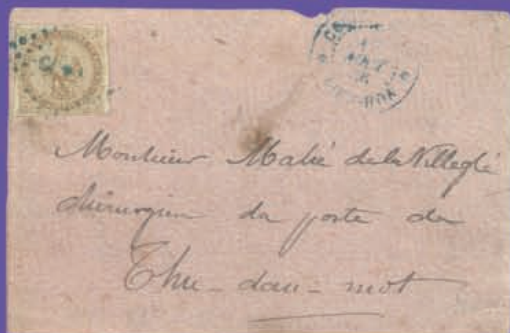 Monsieur Mahé de la Villeglé
chirurgien du poste de
Thu-dau-mot